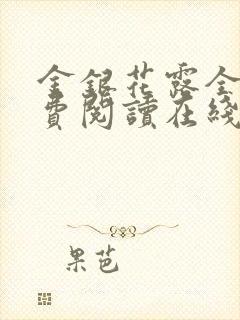 金銀花露全
費閱讀在綫
果芭